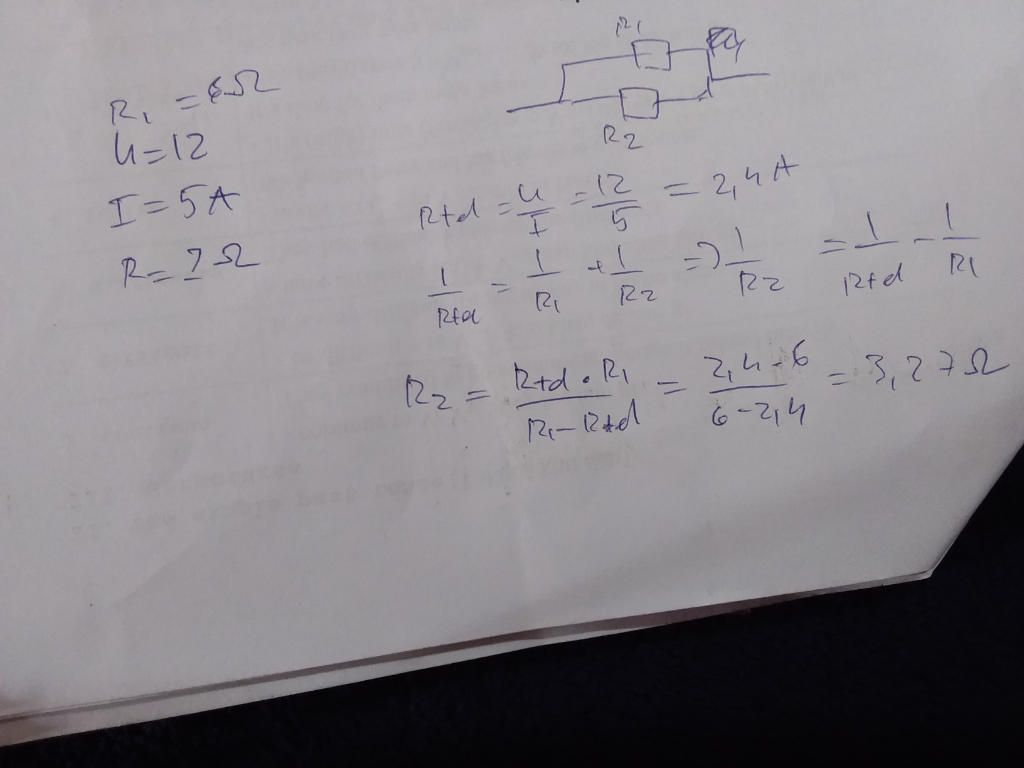 R1
R2
R1 = 6Ω
U = 12
I = 5A
R = ? Ω
Rtd = U/I = 12/5 = 2,4 A
1/Rtd = 1/R1 + 1/R2 => 1/R2 = 1/Rtd - 1/R1
R2 = Rtd . R1 / R1 - Rtd = 2,4 - 6 / 6 - 2,4 = 3,27 Ω